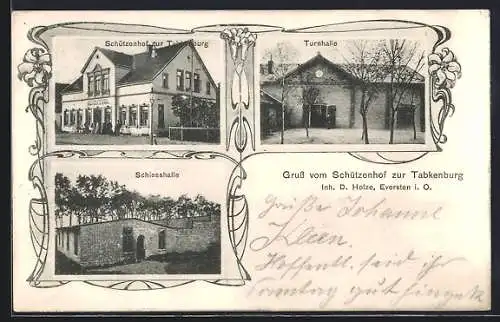 Schützenhof zur Tabkenburg
Turnhalle
Schiesshalle
Gruß vom Schützenhof zur Tabkenburg
Inh. D. Holze, Eversten i. O.
Grüße Johanne
Hoffentl. seid ihr
Sonntag gut